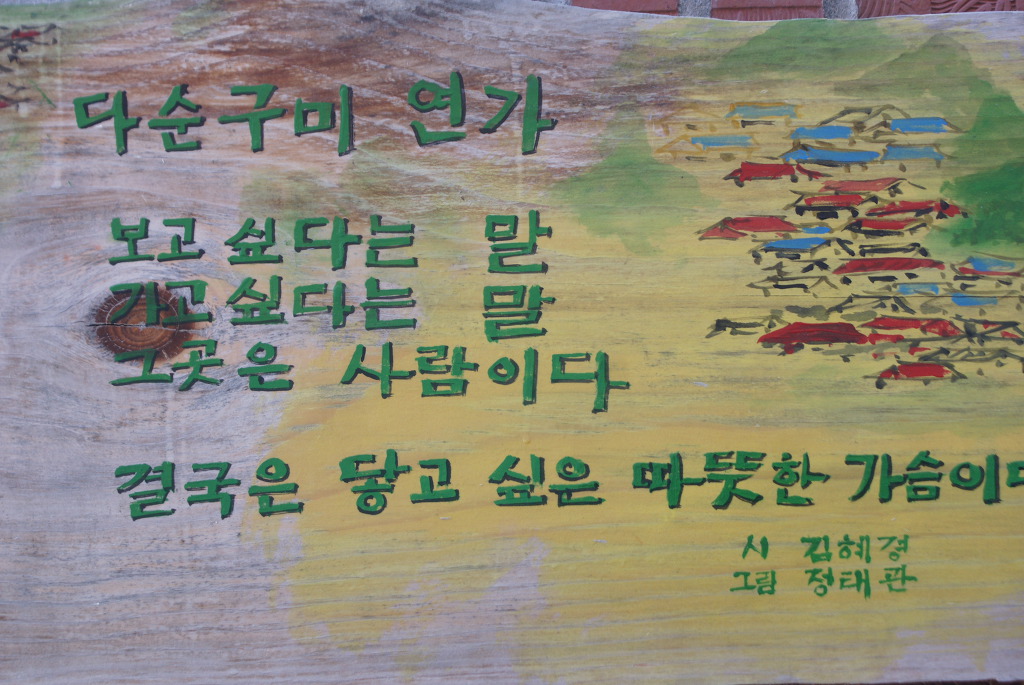 다순구미 연가
보고 싶다는 말
가고 싶다는 말
그곳은 사람이다
결국은 닿고 싶은 따뜻한 가슴이다
시 김혜경
그림 정태관